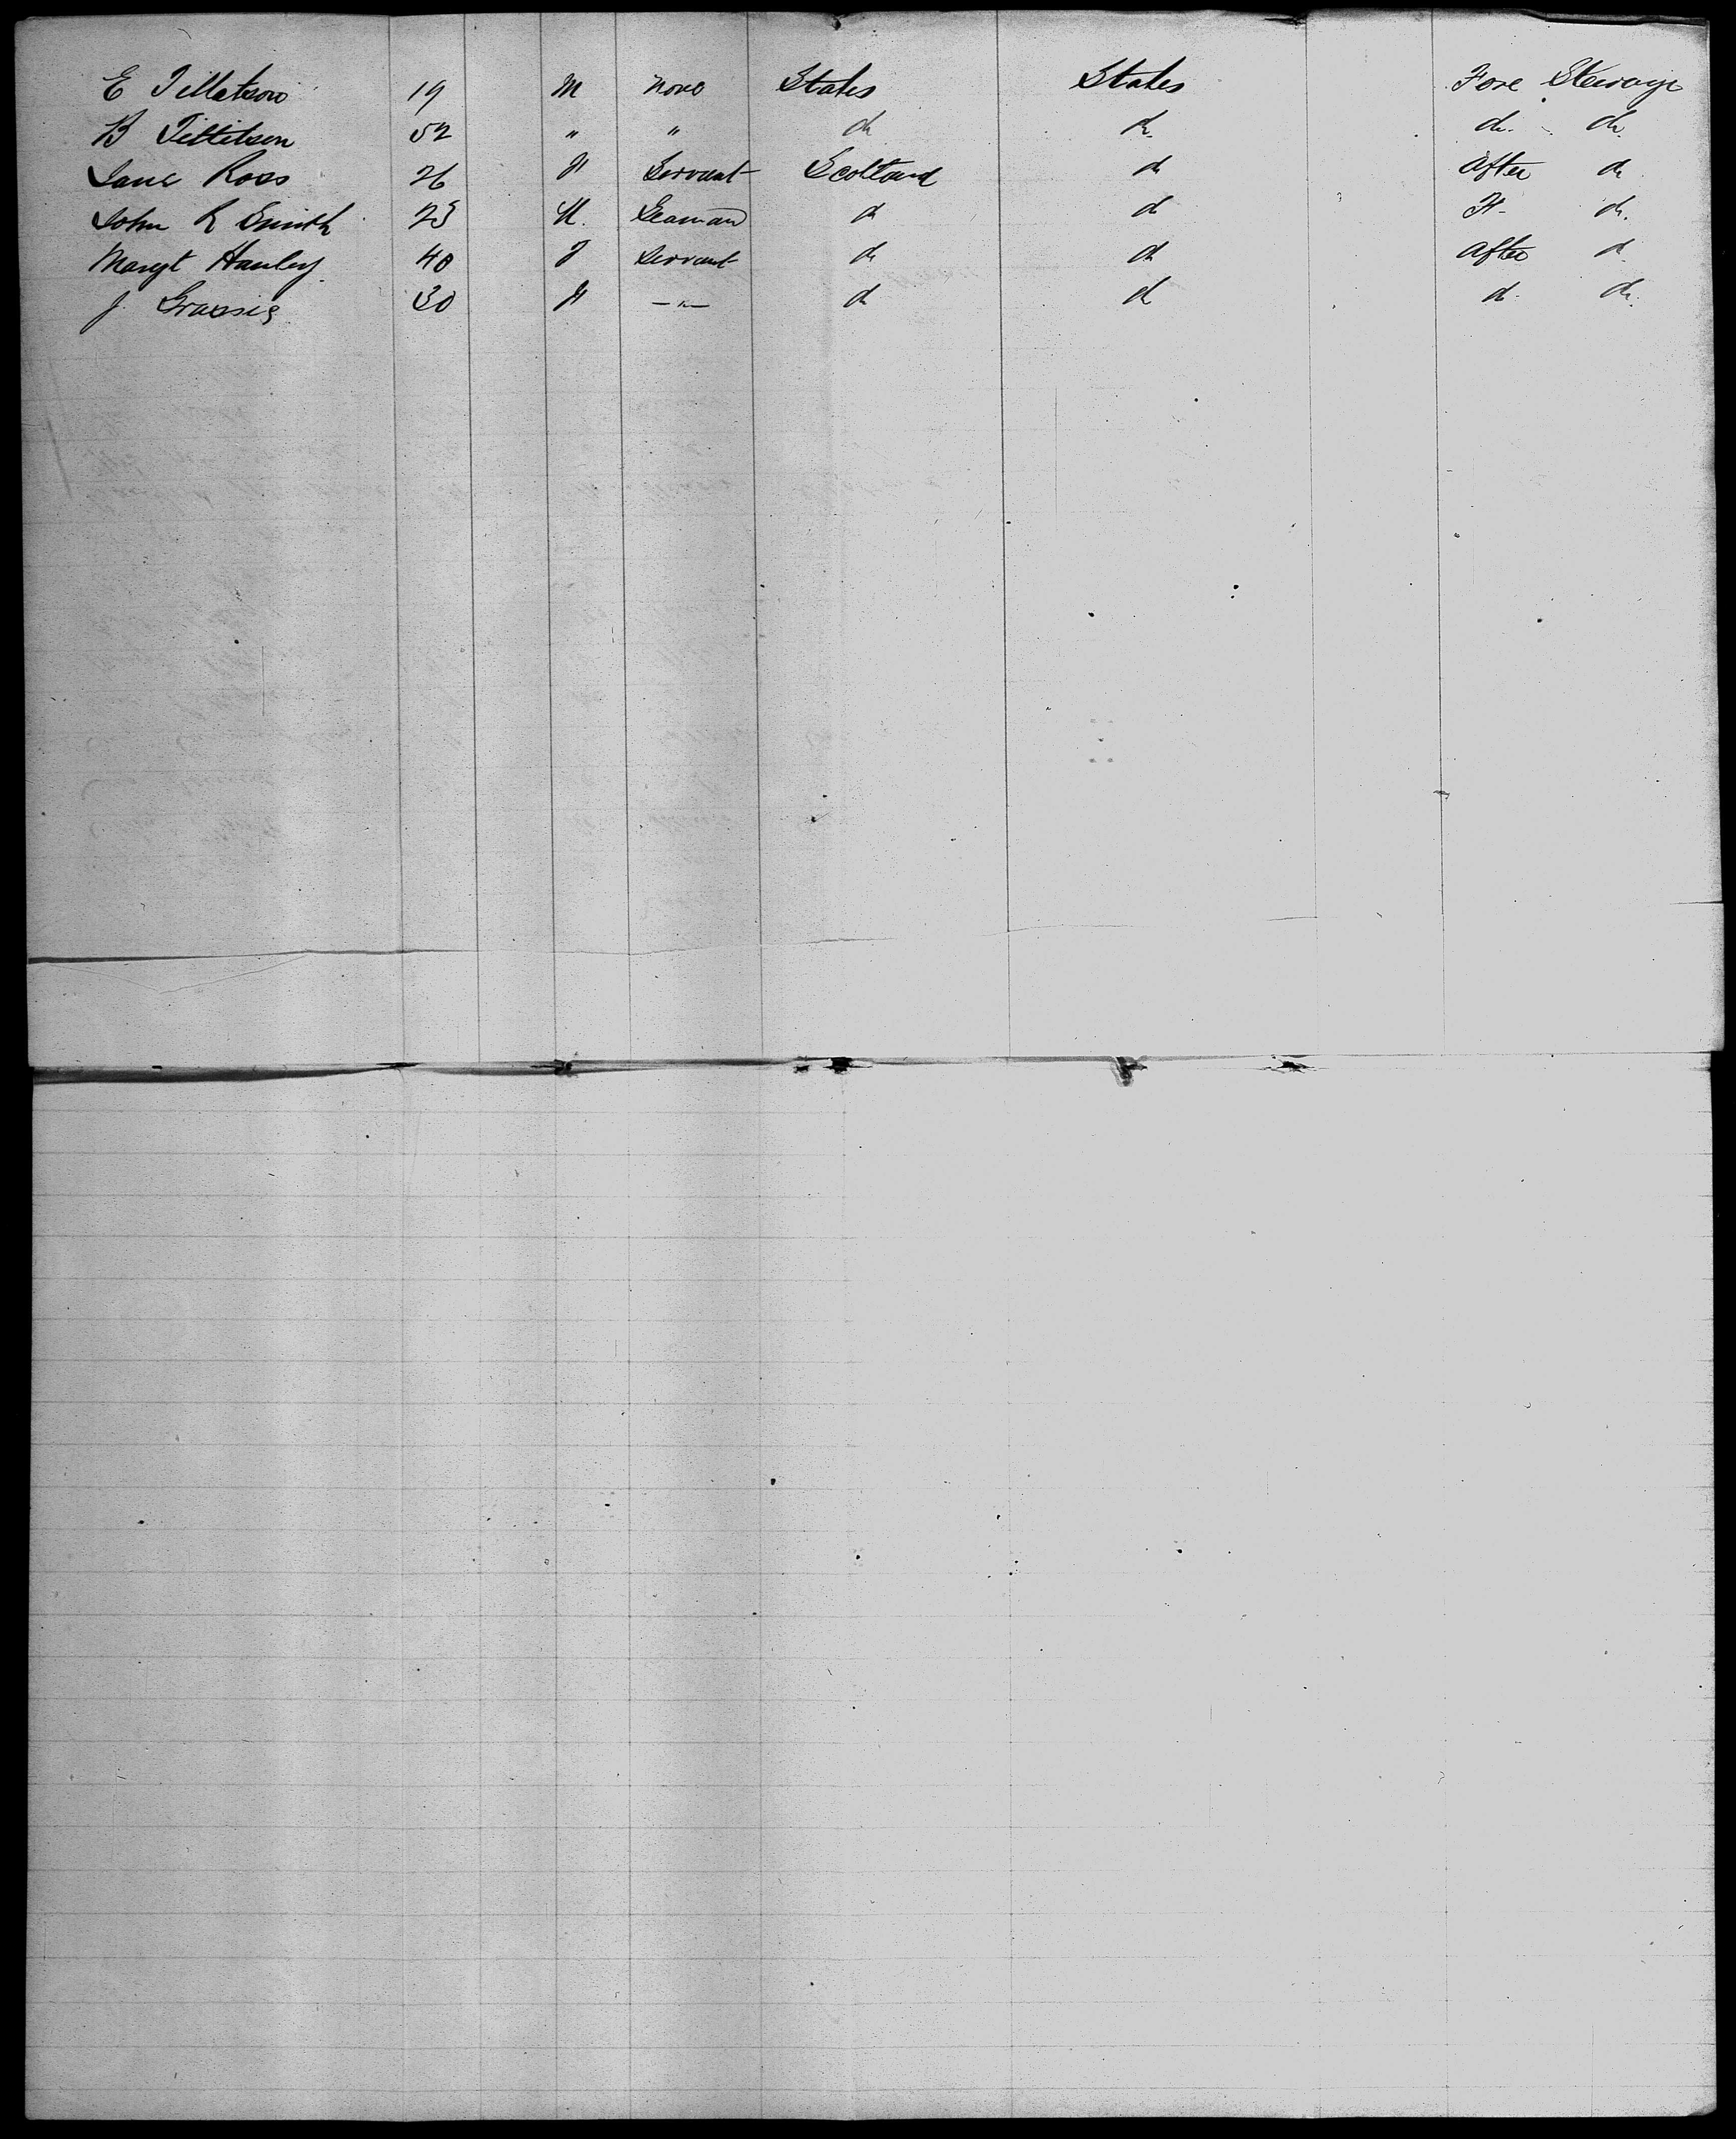 E Tillotson 19 M None States States Fore Steerage
B Tillitson 52 " " do do do do
Jane Ross 26 F Servant Scotland do After do
John R Smith 23 M. Seaman do do F do
Margt Hanley 40 F Servant do do After do
J Grassie 30 F —"— do do do do